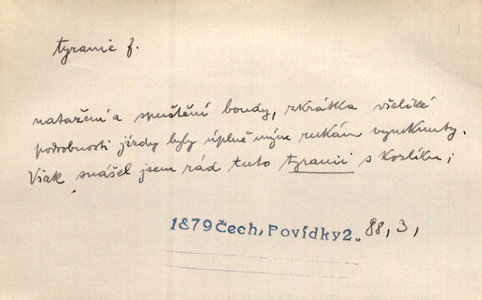 tyranie f.
natažení a spuštění boudy, zkrátka všeliké
podrobnosti jízdy byly úplně mým rukám vymknuty.
Však snášel jsem rád tuto tyranii s Kozlíku;
1879 Čech, Povídky 2. 88, 3,